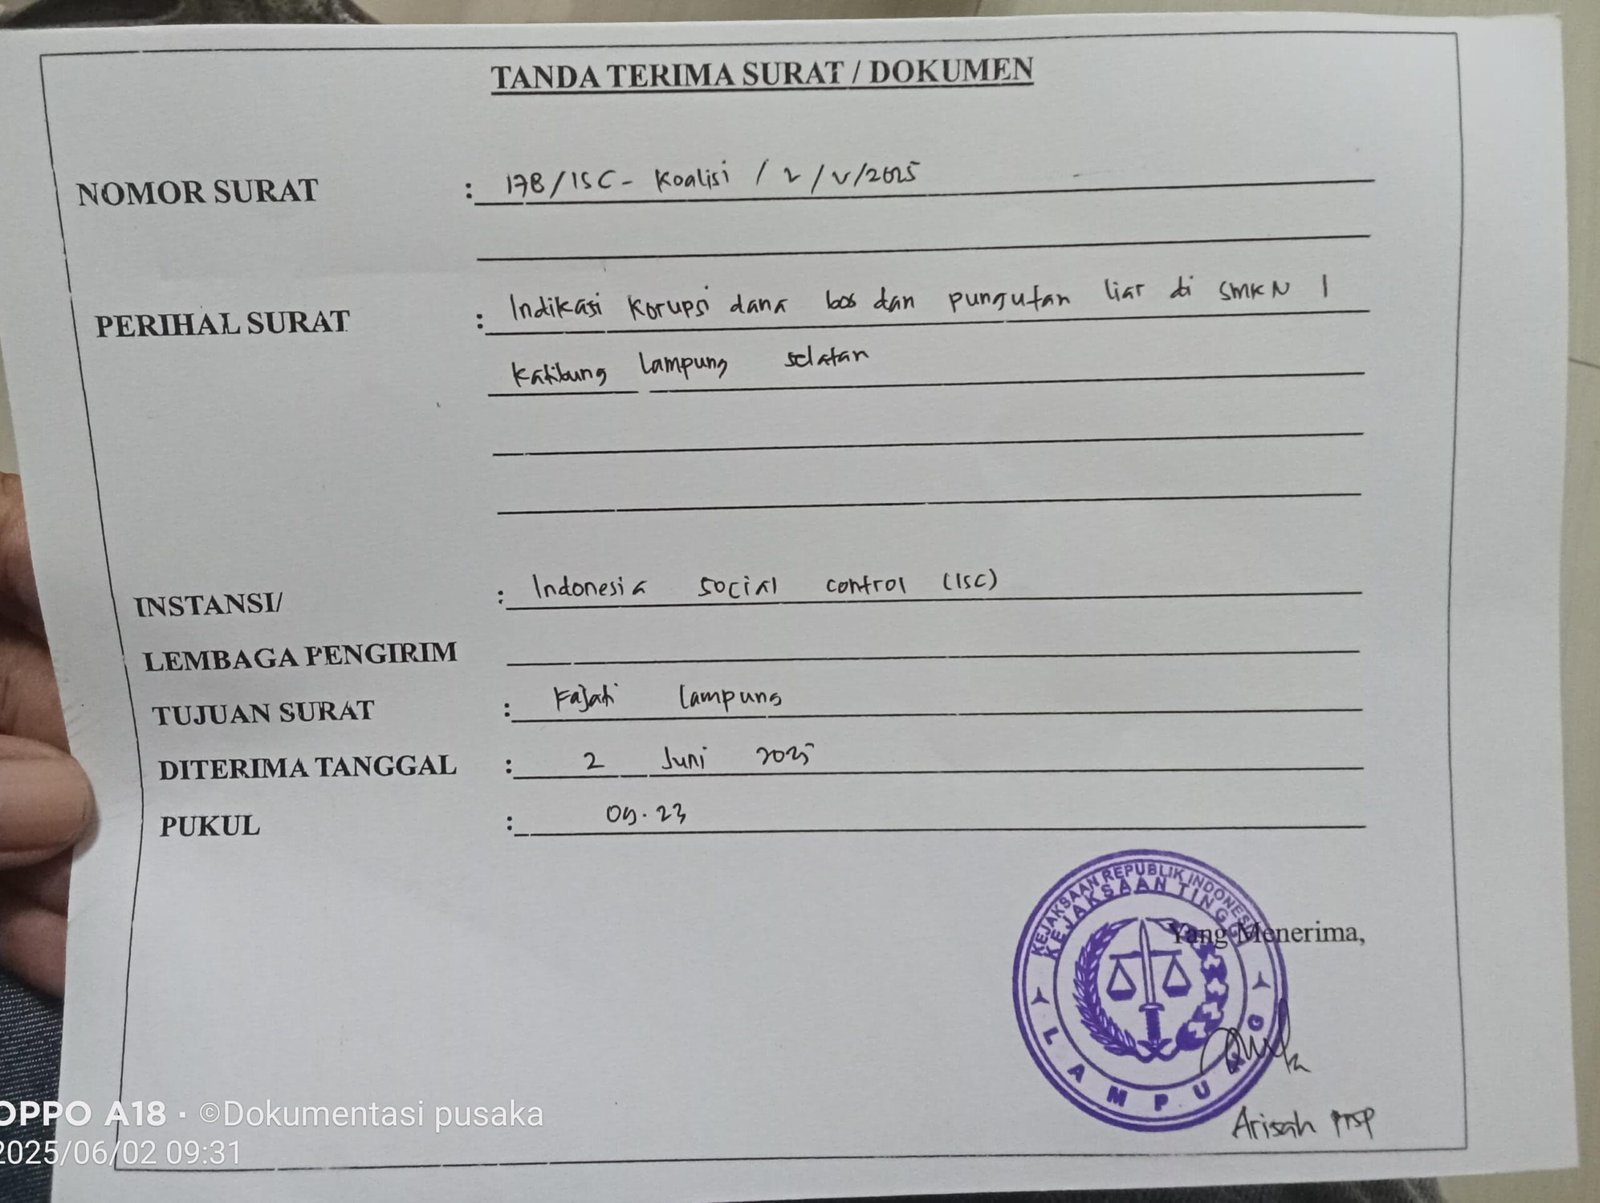 TANDA TERIMA SURAT / DOKUMEN
NOMOR SURAT : 178/ISC- Koalisi / 2 / V/2025
PERIHAL SURAT : Indikasi Korupsi dana bos dan pungutan liar di SMKN 1
Katibung Lampung selatan
INSTANSI/ : Indonesia social control (ISC)
LEMBAGA PENGIRIM
TUJUAN SURAT : Kajati Lampung
DITERIMA TANGGAL : 2 Juni 2025
PUKUL : 09.23
KEJAKSAAN REPUBLIK INDONESIA
KEJAKSAAN TINGGI
LAMPUNG
Yang Menerima,
Arisah PTSP
OPPO A18 · ©Dokumentasi pusaka
2025/06/02 09:31